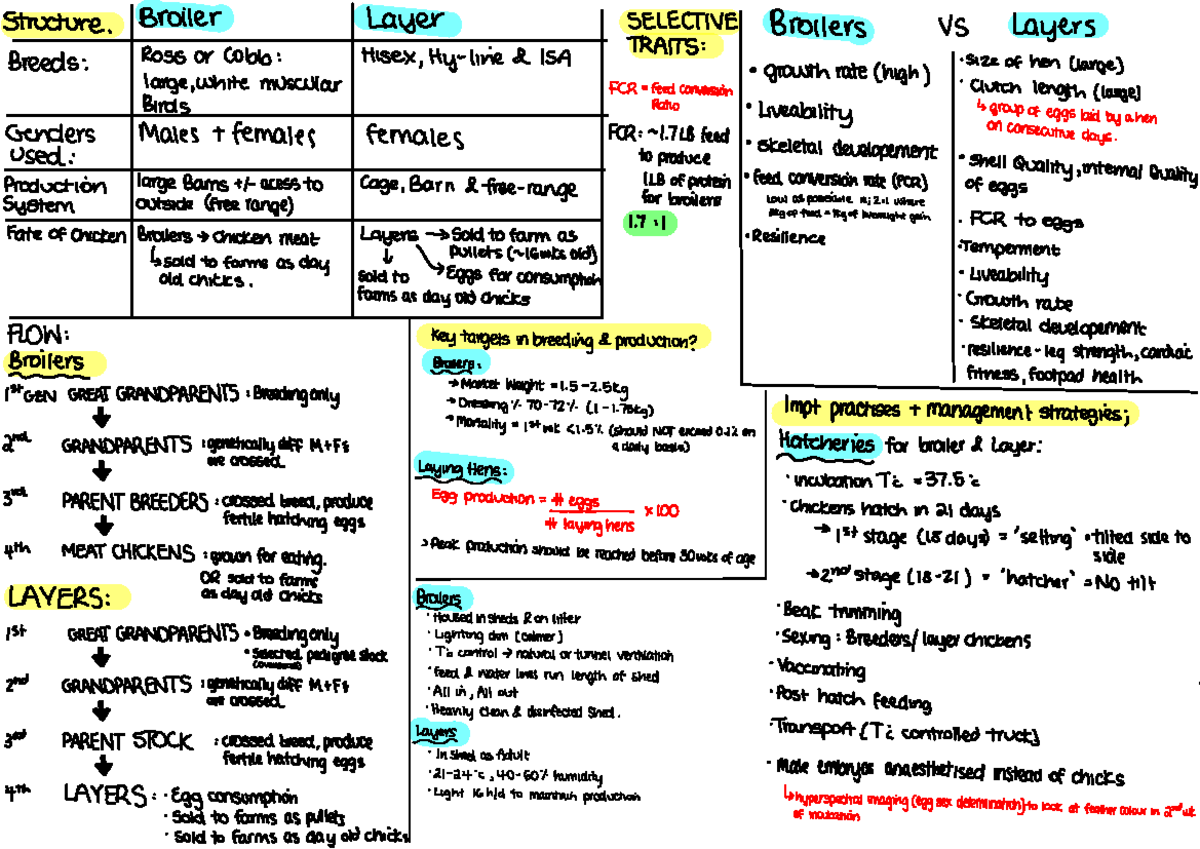 Structure.
Broiler
Layer
Breeds:
Ross or Cobb:
large, white muscular
Birds
Hisex, Hy-line & ISA
Genders
used:
Males + females
females
Production
System
large Barns +/- access to
outside (free range)
Cage, Barn & free-range
Fate of Chicken
Broilers → chicken meat
↳ sold to farms as day
old chicks.
Layers → Sold to farm as
pullets (~16wks old)
↘ Eggs for consumption
↓
Sold to
farms as day old chicks
SELECTIVE
TRAITS:
FCR = feed conversion
Ratio
FCR: ~1.7 LB feed
to produce
1LB of protein
for broilers
1.7 : 1
Broilers VS Layers
• growth rate (high)
• Liveability
• skeletal developement
• feed conversion rate (FCR)
• Resilience
• Size of hen (large)
• Clutch length (large)
↳ group of eggs laid by a hen
on consecutive days.
• Shell Quality, internal Quality
of eggs
• FCR to eggs
• Temperment
• Liveability
• Growth rate
• Skeletal developement
• resilience - leg strength, cardiac
fitness, footpad health
FLOW:
Broilers
1st GEN GREAT GRANDPARENTS : Breeding only
2nd GRANDPARENTS : genetically diff M+Fs
are crossed.
3rd PARENT BREEDERS : crossed breed, produce
fertile hatching eggs
4th MEAT CHICKENS : grown for eating.
OR sold to farms
as day old chicks
LAYERS:
1st GREAT GRANDPARENTS • Breeding only
• Selected, pedigree stock
2nd GRANDPARENTS : genetically diff M+Fs
are crossed.
3rd PARENT STOCK : crossed breed, produce
fertile hatching eggs
4th LAYERS : • Egg consumption
• Sold to farms as pullets
• Sold to farms as day old chicks
Key targets in breeding & production?
Broilers:
→ Market Weight = 1.5 - 2.5kg
→ Dressing % 70-72% (1 - 1.75kg)
→ Mortality = 1st wk <1.5% (should NOT exceed 0.1% on
a daily basis)
Laying Hens:
Egg production = # eggs
# laying hens
× 100
> Peak production should be reached before 30wks of age
Broilers
• Housed in sheds & on litter
• Lighting dim (calmer)
• T°c control → natural or tunnel ventilation
• feed & water lines run length of shed
• All in, All out
• Heavily clean & disinfected shed.
Layers
• In shed as Adult
• 21-24°c, 40-60% humidity
• Light 16 h/d to maintain production
Impt practises + management strategies;
Hatcheries for broiler & Layer:
• incubation T°c = 37.5°c
• Chickens hatch in 21 days
→ 1st stage (18 days) = 'setting' • tilted side to
side
→ 2nd stage (18-21) = 'hatcher' = NO tilt
• Beak trimming
• Sexing : Breeders/ layer chickens
• Vaccinating
• Post hatch feeding
• Transport (T°c controlled truck)
• Male embryos anaesthetised instead of chicks
↳ hyperspectral imaging (egg sex determination) to look at feather colour in 2nd wk
of incubation